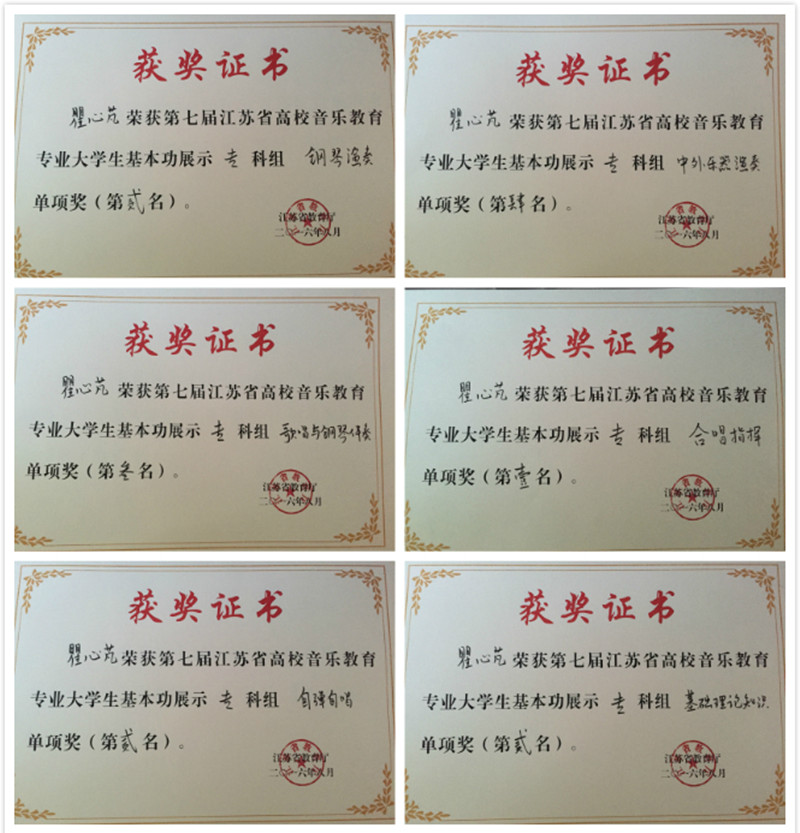 获奖证书
瞿心芃荣获第七届江苏省高校音乐教育
专业大学生基本功展示 专 科组 钢琴演奏
单项奖（第贰名）。
江苏省教育厅
二〇一六年八月
获奖证书
瞿心芃荣获第七届江苏省高校音乐教育
专业大学生基本功展示 专 科组 中外乐器演奏
单项奖（第肆名）。
江苏省教育厅
二〇一六年八月
获奖证书
瞿心芃荣获第七届江苏省高校音乐教育
专业大学生基本功展示 专 科组 歌唱与钢琴伴奏
单项奖（第叁名）。
江苏省教育厅
二〇一六年八月
获奖证书
瞿心芃荣获第七届江苏省高校音乐教育
专业大学生基本功展示 专 科组 合唱指挥
单项奖（第壹名）。
江苏省教育厅
二〇一六年八月
获奖证书
瞿心芃荣获第七届江苏省高校音乐教育
专业大学生基本功展示 专 科组 自弹自唱
单项奖（第贰名）。
江苏省教育厅
二〇一六年八月
获奖证书
瞿心芃荣获第七届江苏省高校音乐教育
专业大学生基本功展示 专 科组 基础理论知识
单项奖（第贰名）。
江苏省教育厅
二〇一六年八月